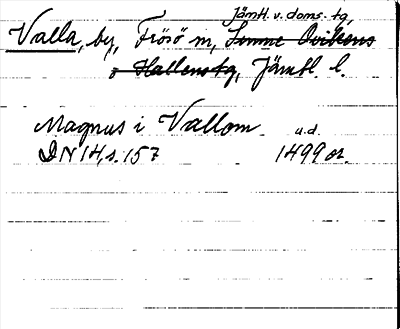 Jämtl. v. doms. tg,
Valla, by, Frösö sn, Sunne Ovikens
o Hallens tg, Jämtl. l.
Magnus i Vallom u.d.
DN 14, s. 157 1499 or.